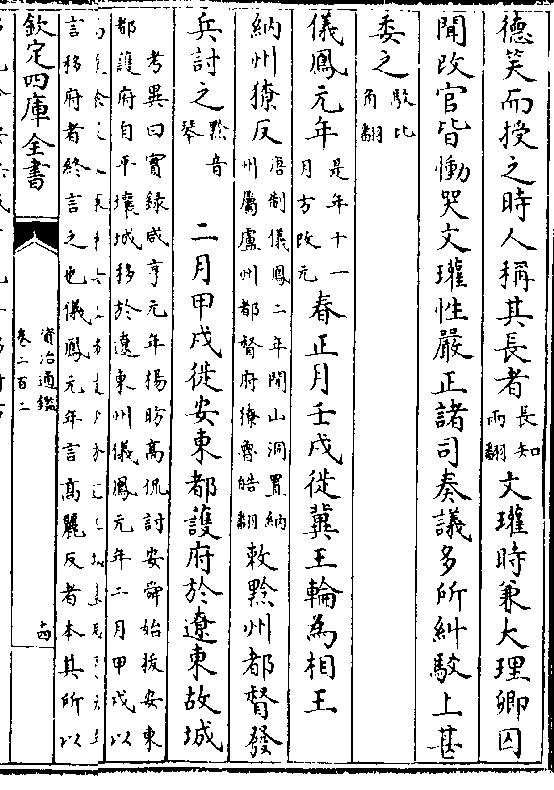 德笑而授之時人稱其長者長知兩翻文瓘時兼大理卿囚
聞改官皆慟哭文瓘性嚴正諸司奏議多所糾駮上甚
委之駮比角翻
儀鳳元年是年十一月方改元春正月壬戌徙冀王輪為相王
納州獠反唐制儀鳳二年開山洞置納州屬盧州都督府獠魯皓翻敕黔州都督發
兵討之黔音琴二月甲戌徙安東都護府於遼東故城
考異曰實録咸亨元年楊昉高侃討安舜始拔安東
都護府自平壤城移於遼東州儀鳳元年二月甲戌以
言移府者終言之也儀鳳元年言高麗反者本其所以
欽定四庫全書
資治通鑑
卷二百二
十四